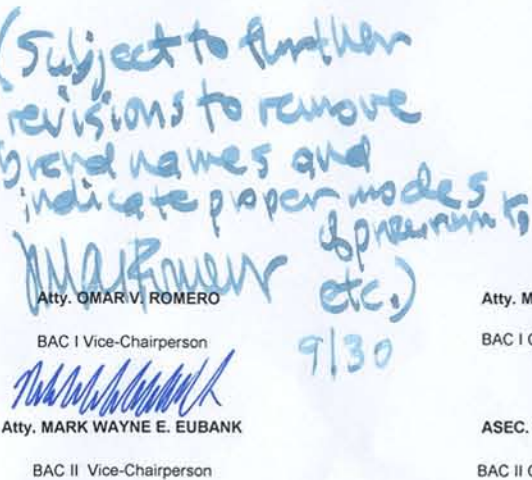 (Subject to further
revisions to remove
brand names and
indicate proper modes
of procurements
etc.)
9/30
Atty. OMAR V. ROMERO
BAC I Vice-Chairperson
Atty. MARK WAYNE E. EUBANK
BAC II Vice-Chairperson
Atty. M
BAC I C
ASEC.
BAC II C